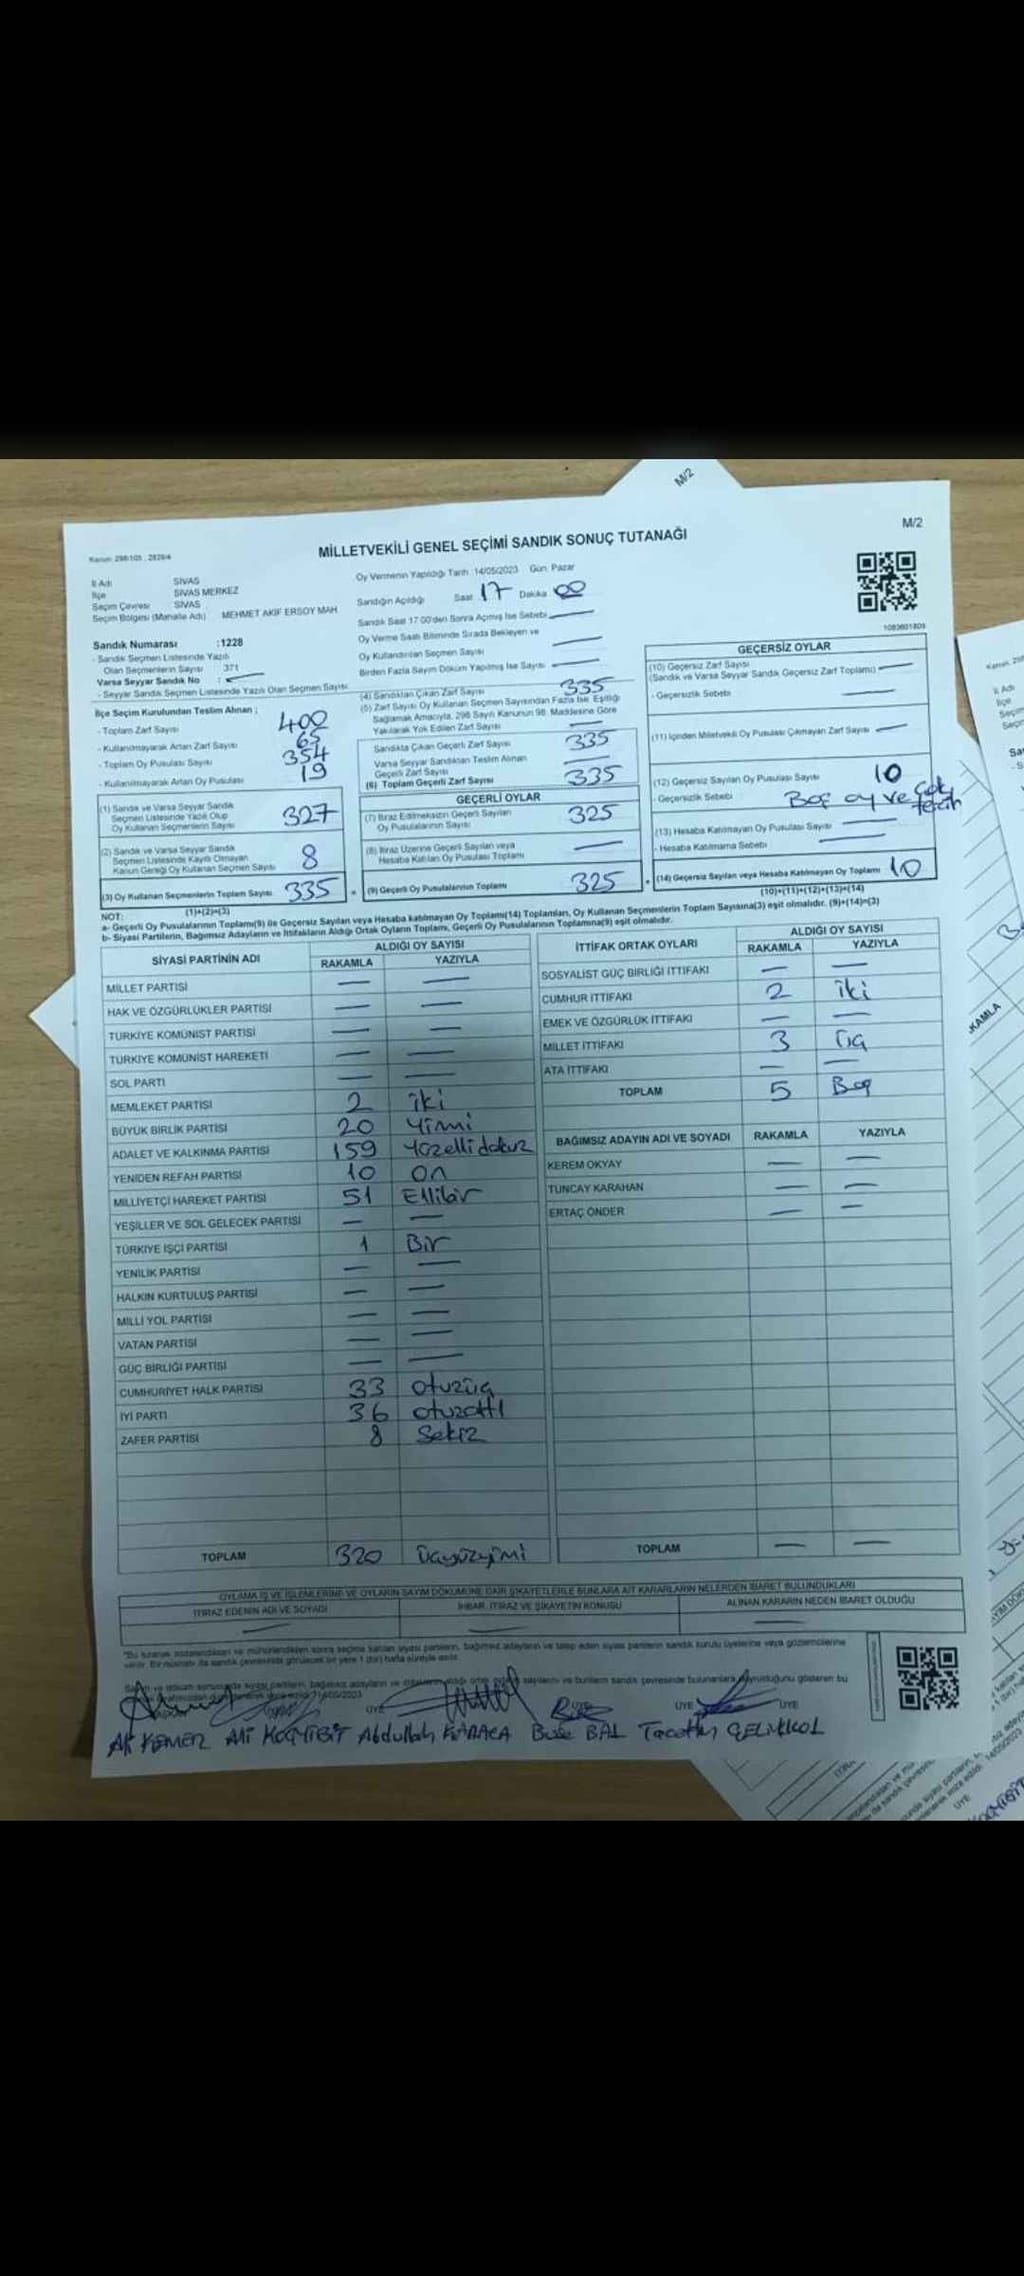 M/2
M/2
Kanun: 298/105 , 2839/4
MİLLETVEKİLİ GENEL SEÇİMİ SANDIK SONUÇ TUTANAĞI
İl Adı SİVAS
İlçe SİVAS MERKEZ
Seçim Çevresi SİVAS
Seçim Bölgesi (Mahalle Adı) MEHMET AKİF ERSOY MAH.
Oy Vermenin Yapıldığı Tarih :14/05/2023 Gün: Pazar
Sandığın Açıldığı Saat 17 Dakika 00
Sandık Saat 17:00'den Sonra Açılmış İse Sebebi —
Oy Verme Saati Bitiminde Sırada Bekleyen ve
Oy Kullandırılan Seçmen Sayısı —
Birden Fazla Sayım Döküm Yapılmış İse Sayısı —
1083601809
Sandık Numarası :1228
- Sandık Seçmen Listesinde Yazılı
Olan Seçmenlerin Sayısı : 371
Varsa Seyyar Sandık No : —
- Seyyar Sandık Seçmen Listesinde Yazılı Olan Seçmen Sayısı
İlçe Seçim Kurulundan Teslim Alınan ;
- Toplam Zarf Sayısı 400
- Kullanılmayarak Artan Zarf Sayısı 65
- Toplam Oy Pusulası Sayısı 354
- Kullanılmayarak Artan Oy Pusulası 19
(1) Sandık ve Varsa Seyyar Sandık
Seçmen Listesinde Yazılı Olup
Oy Kullanan Seçmenlerin Sayısı 327
(2) Sandık ve Varsa Seyyar Sandık
Seçmen Listesinde Kayıtlı Olmayan
Kanun Gereği Oy Kullanan Seçmen Sayısı 8
(3) Oy Kullanan Seçmenlerin Toplam Sayısı 335
(1)+(2)=(3)
(4) Sandıktan Çıkan Zarf Sayısı 335
(5) Zarf Sayısı Oy Kullanan Seçmen Sayısından Fazla İse, Eşitliği
Sağlamak Amacıyla, 298 Sayılı Kanunun 98. Maddesine Göre
Yakılarak Yok Edilen Zarf Sayısı —
Sandıkta Çıkan Geçerli Zarf Sayısı 335
Varsa Seyyar Sandıktan Teslim Alınan
Geçerli Zarf Sayısı —
(6) Toplam Geçerli Zarf Sayısı 335
GEÇERLİ OYLAR
(7) İtiraz Edilmeksizin Geçerli Sayılan
Oy Pusulalarının Sayısı 325
(8) İtiraz Üzerine Geçerli Sayılan veya
Hesaba Katılan Oy Pusulası Toplamı —
= (9) Geçerli Oy Pusulalarının Toplamı 325
GEÇERSİZ OYLAR
(10) Geçersiz Zarf Sayısı
(Sandık ve Varsa Seyyar Sandık Geçersiz Zarf Toplamı) —
- Geçersizlik Sebebi —
(11) İçinden Milletvekili Oy Pusulası Çıkmayan Zarf Sayısı —
(12) Geçersiz Sayılan Oy Pusulası Sayısı 10
- Geçersizlik Sebebi Boş oy ve çok tercih
(13) Hesaba Katılmayan Oy Pusulası Sayısı —
- Hesaba Katılmama Sebebi —
+ (14) Geçersiz Sayılan veya Hesaba Katılmayan Oy Toplamı 10
(10)+(11)+(12)+(13)=(14)
NOT:
a- Geçerli Oy Pusulalarının Toplamı(9) ile Geçersiz Sayılan veya Hesaba katılmayan Oy Toplamı(14) Toplamları, Oy Kullanan Seçmenlerin Toplam Sayısına(3) eşit olmalıdır. (9)+(14)=(3)
b- Siyasi Partilerin, Bağımsız Adayların ve İttifakların Aldığı Ortak Oyların Toplamı, Geçerli Oy Pusulalarının Toplamına(9) eşit olmalıdır.
SİYASİ PARTİNİN ADI ALDIĞI OY SAYISI
RAKAMLA YAZIYLA
MİLLET PARTİSİ — —
HAK VE ÖZGÜRLÜKLER PARTİSİ — —
TÜRKİYE KOMÜNİST PARTİSİ — —
TÜRKİYE KOMÜNİST HAREKETİ — —
SOL PARTİ — —
MEMLEKET PARTİSİ 2 iki
BÜYÜK BİRLİK PARTİSİ 20 Yirmi
ADALET VE KALKINMA PARTİSİ 159 Yüzellidokuz
YENİDEN REFAH PARTİSİ 10 On
MİLLİYETÇİ HAREKET PARTİSİ 51 Ellibir
YEŞİLLER VE SOL GELECEK PARTİSİ — —
TÜRKİYE İŞÇİ PARTİSİ 1 Bir
YENİLİK PARTİSİ — —
HALKIN KURTULUŞ PARTİSİ — —
MİLLİ YOL PARTİSİ — —
VATAN PARTİSİ — —
GÜÇ BİRLİĞİ PARTİSİ — —
CUMHURİYET HALK PARTİSİ 33 otuzüç
İYİ PARTİ 36 otuzaltı
ZAFER PARTİSİ 8 Sekiz
TOPLAM 320 Üçyüzyirmi
İTTİFAK ORTAK OYLARI ALDIĞI OY SAYISI
RAKAMLA YAZIYLA
SOSYALİST GÜÇ BİRLİĞİ İTTİFAKI — —
CUMHUR İTTİFAKI 2 iki
EMEK VE ÖZGÜRLÜK İTTİFAKI — —
MİLLET İTTİFAKI 3 Üç
ATA İTTİFAKI — —
TOPLAM 5 Beş
BAĞIMSIZ ADAYIN ADI VE SOYADI RAKAMLA YAZIYLA
KEREM OKYAY — —
TUNCAY KARAHAN — —
ERTAÇ ÖNDER — —
TOPLAM — —
OYLAMA İŞ VE İŞLEMLERİNE VE OYLARIN SAYIM DÖKÜMÜNE DAİR ŞİKAYETLERLE BUNLARA AİT KARARLARIN NELERDEN İBARET BULUNDUKLARI
İTİRAZ EDENİN ADI VE SOYADI İHBAR, İTİRAZ VE ŞİKAYETİN KONUSU ALINAN KARARIN NEDEN İBARET OLDUĞU
— — —
ÜYE ÜYE ÜYE
Ali KEMER Ali KOÇYİĞİT Abdullah KARACA Buse BAL Tacettin ÇELİKKOL